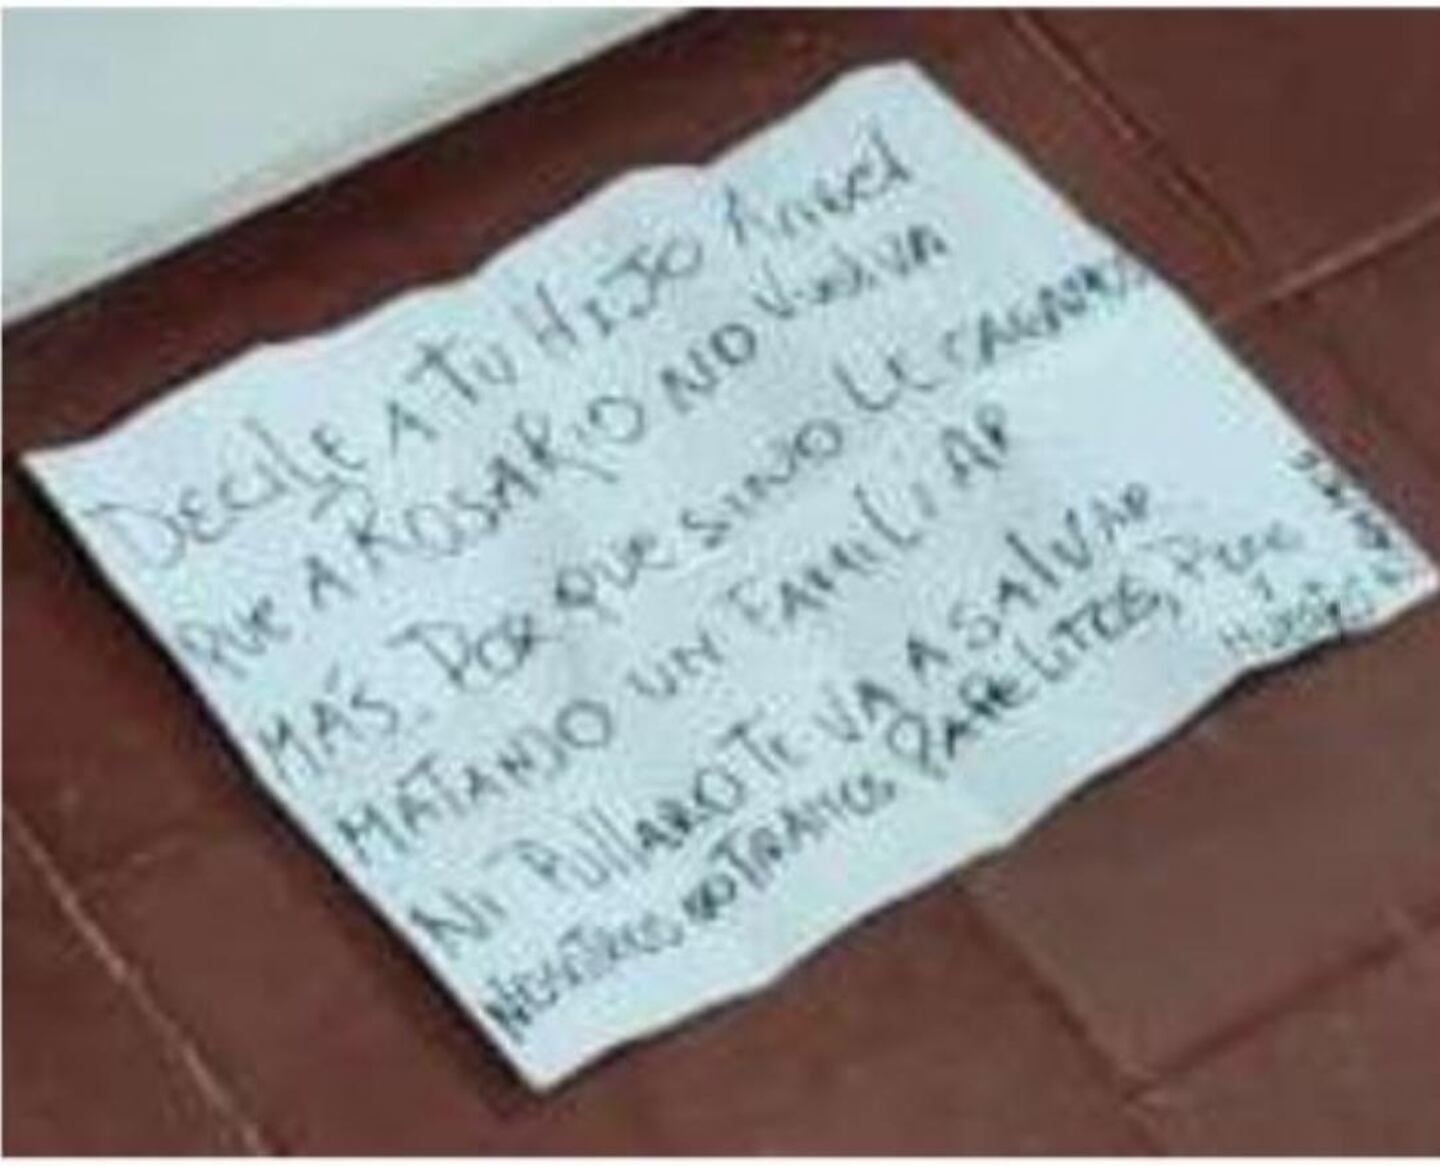 DECILE A TU HIJO ANGEL
QUE A ROSARIO NO VUELVA
MÁS. POR QUE SINO LE CAGAMOS
MATANDO UN FAMILIAR
NI PULLARO TE VA A SALVAR
NOSOTROS NO TIRAMOS PAPELITOS,